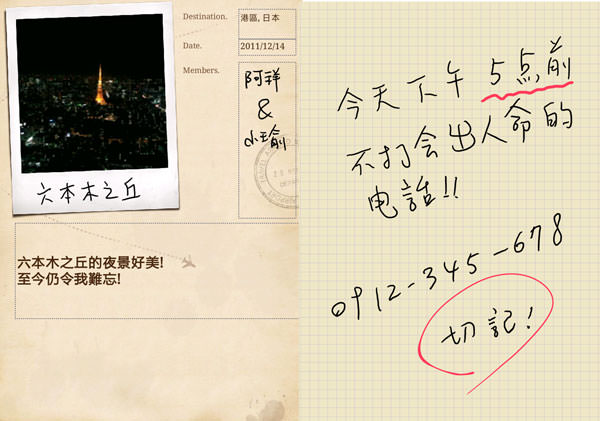 Destination.
港區, 日本
Date.
2011/12/14
Members.
阿祥
&
小瑜
六本木之丘
六本木之丘的夜景好美!
至今仍令我難忘!
今天下午5点前
不打会出人命的
电話!!
0912-345-678
切記!